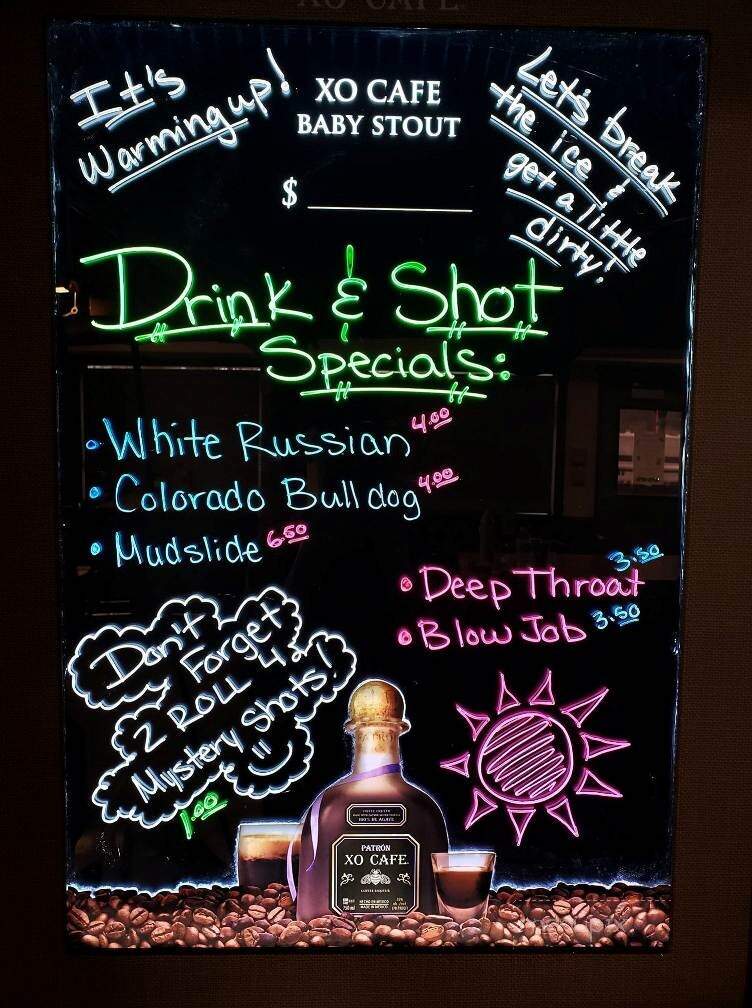 It's
Warming up!
XO CAFE
BABY STOUT
$
Let's break
the ice &
get a little
dirty!
Drink & Shot
Specials:
• White Russian 4.00
• Colorado Bulldog 4.00
• Mudslide 6.50
• Deep Throat 3.50
• Blow Job 3.50
Don't
Forget
2 ROLL 4
Mystery Shots!
1.00
PATRÓN
XO CAFE
COFFEE LIQUEUR
750 ml
HECHO EN MEXICO
MADE IN MEXICO